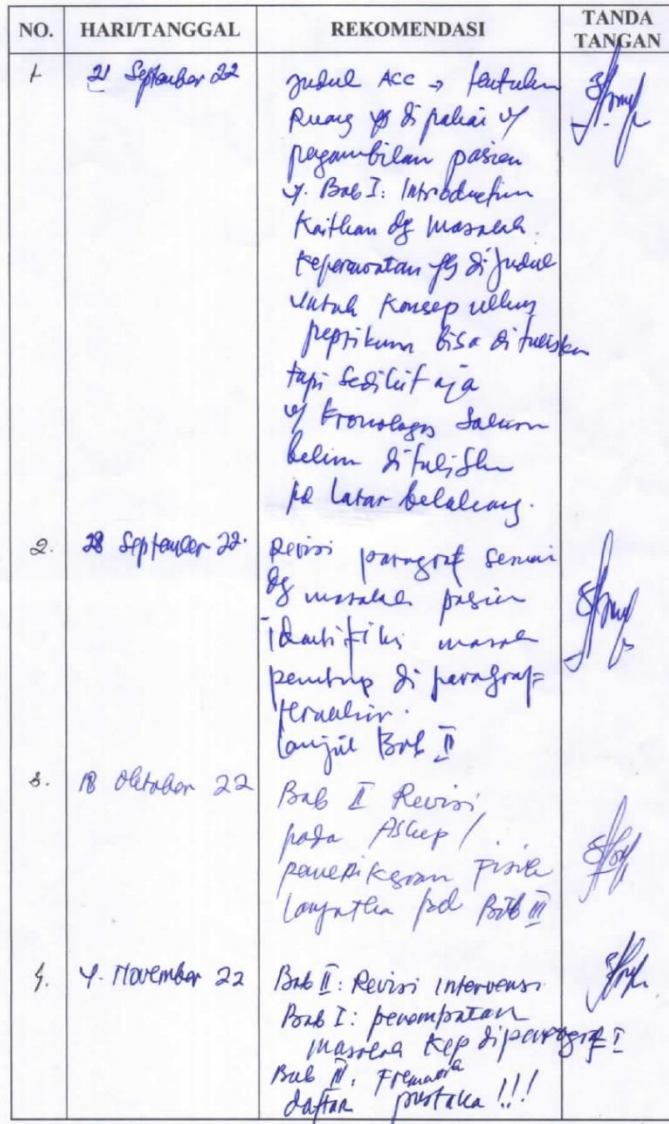 NO. HARI/TANGGAL REKOMENDASI TANDA TANGAN
1. 21 September 22 Judul ACC → tentukan
Ruang yg di pakai u/
pegambilan pasien
Bab I: Introduction
Kaitkan dg masalah
Keperawatan yg di judul
untuk Konsep ulkus
peptikum bisa di tuliskan
tapi sedikit aja
u/ kronologis
belum di tuliskan
pd Latar belakang.
2. 28 September 22. Revisi paragraf sesuai
dg masalah pasien
Identifikasi masalah
penutup di paragraf
terakhir.
Lanjut Bab II
3. 18 Oktober 22 Bab II Revisi
pada Askep /
pemeriksaan Fisik
Lanjutkan pd Bab III
4. 4. November 22 Bab II: Revisi intervensi
Bab I: penempatan
masalah Kep diparagraf I
Bab III:
daftar pustaka !!!